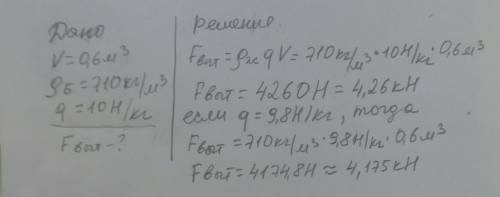 Дано
V=0,6м³
ρб=710кг/м³
q=10Н/кг
Fвыт-?
решение
Fвыт=ρж q V=710кг/м³·10Н/кг·0,6м³
Fвыт=4260Н=4,26кН
если q=9,8Н/кг, тогда
Fвыт=710кг/м³·9,8Н/кг·0,6м³
Fвыт=4174,8Н≈4,175кН